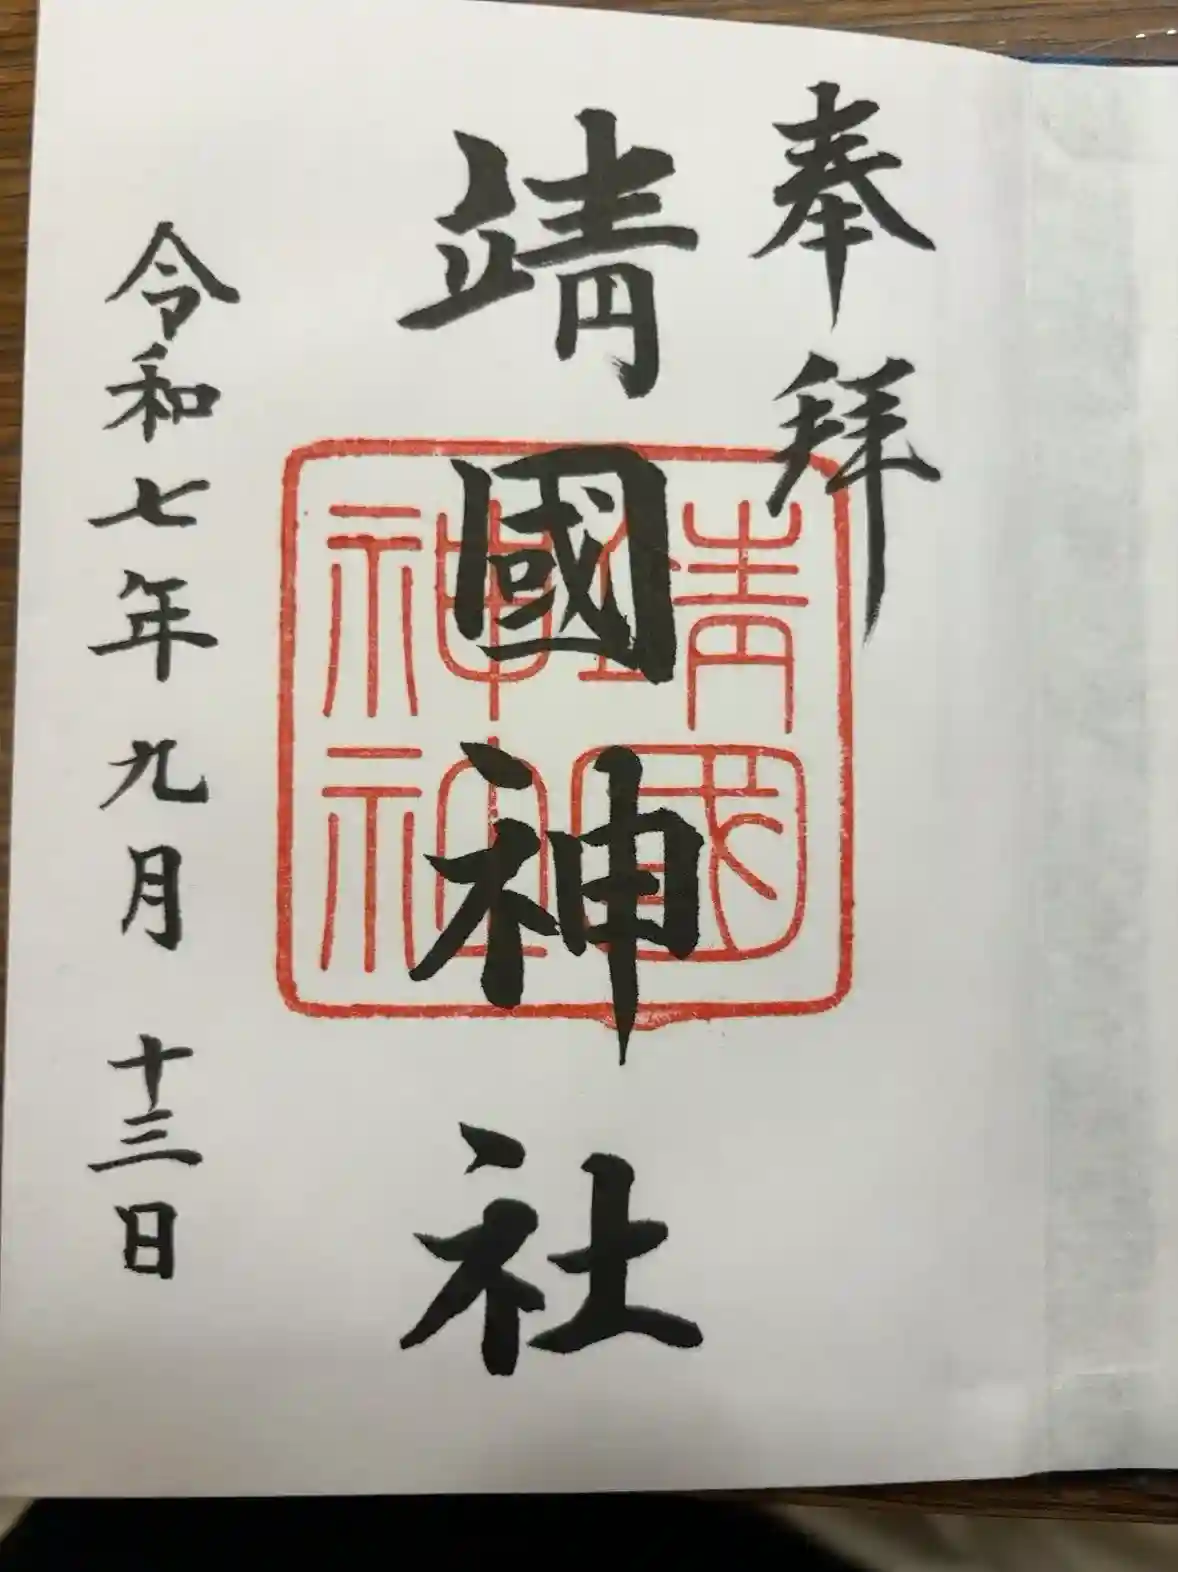 奉拜
靖國神社
靖國
神社
令和七年九月十三日